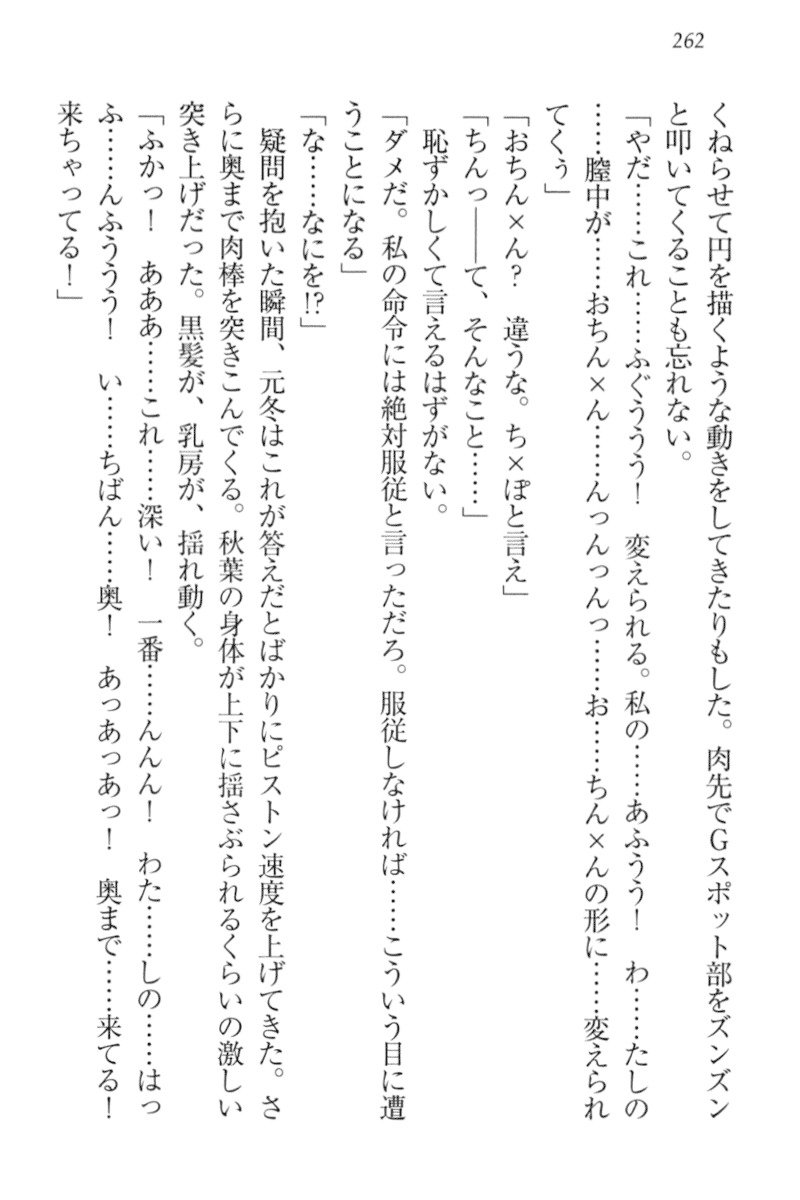 262
くねらせて円を描くような動きをしてきたりもした。肉先でGスポット部をズンズン
と叩いてくることも忘れない。
「やだ……これ……ふぐううう！　変えられる。私の……あふうう！　わ……たしの
……膣中が……おちん×ん……んっんっんっ……お……ちん×んの形に……変えられ
てくぅ」
「おちん×ん？　違うな。ち×ぽと言え」
「ちんっ――て、そんなこと……」
　恥ずかしくて言えるはずがない。
「ダメだ。私の命令には絶対服従と言っただろ。服従しなければ……こういう目に遭
うことになる」
「な……なにを!?」
　疑問を抱いた瞬間、元冬はこれが答えだとばかりにピストン速度を上げてきた。さ
らに奥まで肉棒を突きこんでくる。秋葉の身体が上下に揺さぶられるくらいの激しい
突き上げだった。黒髪が、乳房が、揺れ動く。
「ふかっ！　あああ……これ……深い！　一番……んんん！　わた……しの……はっ
ふ……んふううう！　い……ちばん……奥！　あっあっあっ！　奥まで……来てる！
来ちゃってる！」